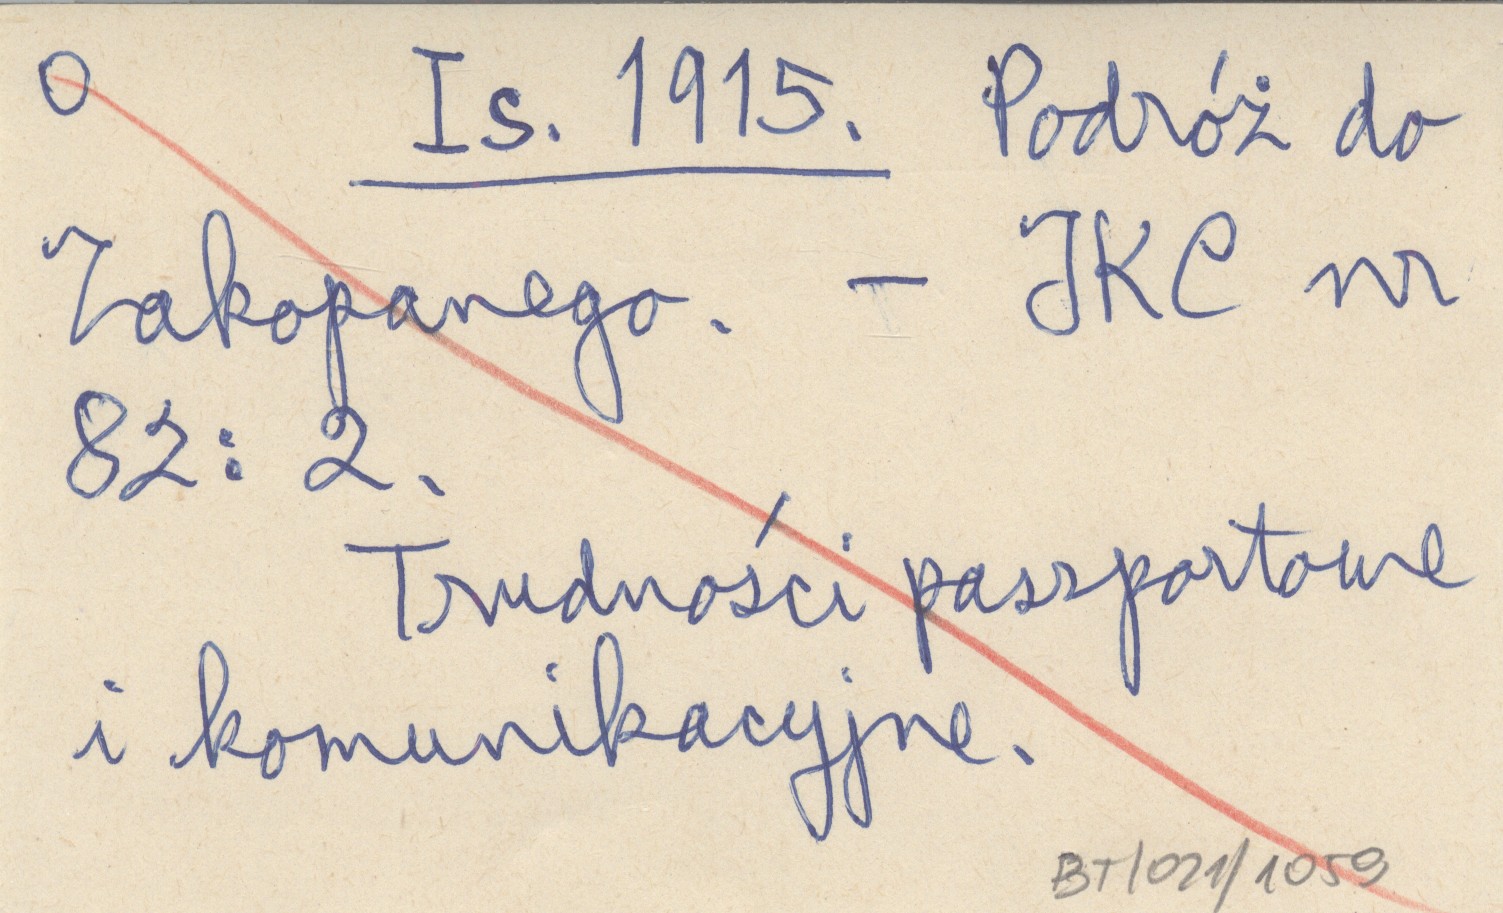 O Is. 1915. Podróż do
Zakopanego. – JKC nr
82: 2.
Trudności paszportowe
i komunikacyjne.
BT/021/1059